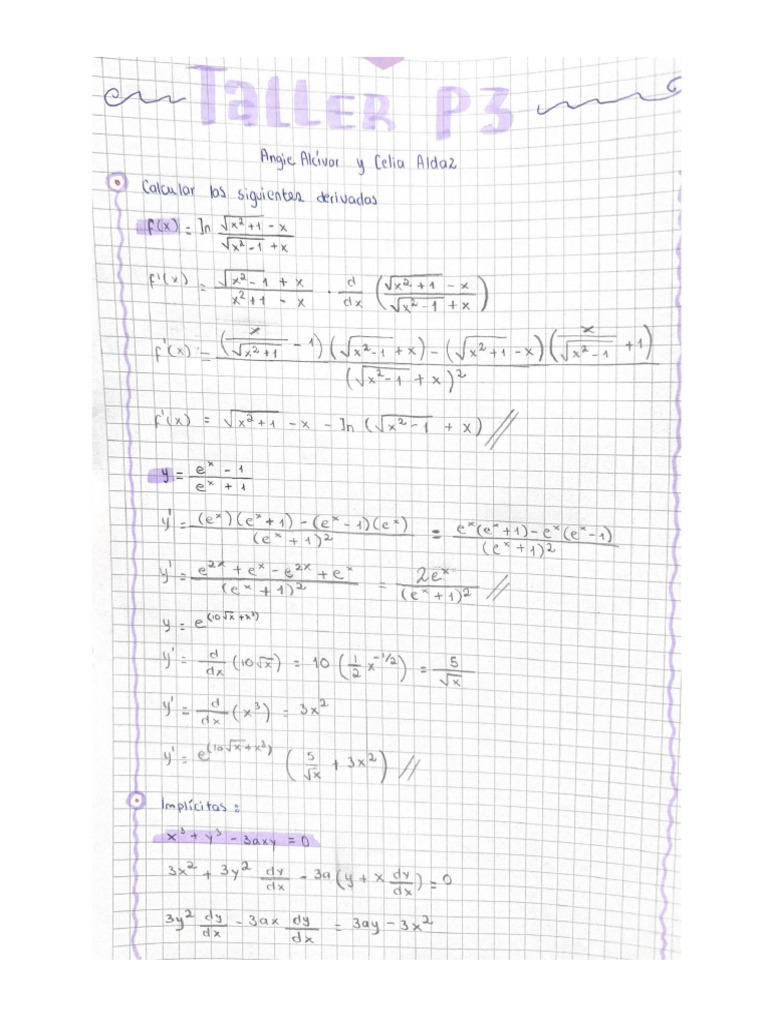 Taller P3
Angie Alcívar y Celia Aldaz
Calcular las siguientes derivadas
f(x) = ln (√(x²+1) - x)/(√(x²-1) + x)
f'(x) = (√(x²-1) + x)/(x²+1 - x) · d/dx ((√(x²+1) - x)/(√(x²-1) + x))
f'(x) = ((x/√(x²+1) - 1)(√(x²-1) + x) - (√(x²+1) - x)(x/√(x²-1) + 1))/(√(x²-1) + x)²
f'(x) = √(x²+1) - x - ln (√(x²-1) + x) //
y = (eˣ - 1)/(eˣ + 1)
y' = ((eˣ)(eˣ+1) - (eˣ-1)(eˣ))/(eˣ+1)² = (eˣ(eˣ+1) - eˣ(eˣ-1))/(eˣ+1)²
y' = (e²ˣ + eˣ - e²ˣ + eˣ)/(eˣ+1)² = 2eˣ/(eˣ+1)² //
y = e^(10√x+x³)
y' = d/dx (10√x) = 10 (1/2 x^(-1/2)) = 5/√x
y' = d/dx (x³) = 3x²
y' = e^(10√x+x³) (5/√x + 3x²) //
Implícitas:
x³ + y³ - 3axy = 0
3x² + 3y² dy/dx - 3a (y + x dy/dx) = 0
3y² dy/dx - 3ax dy/dx = 3ay - 3x²